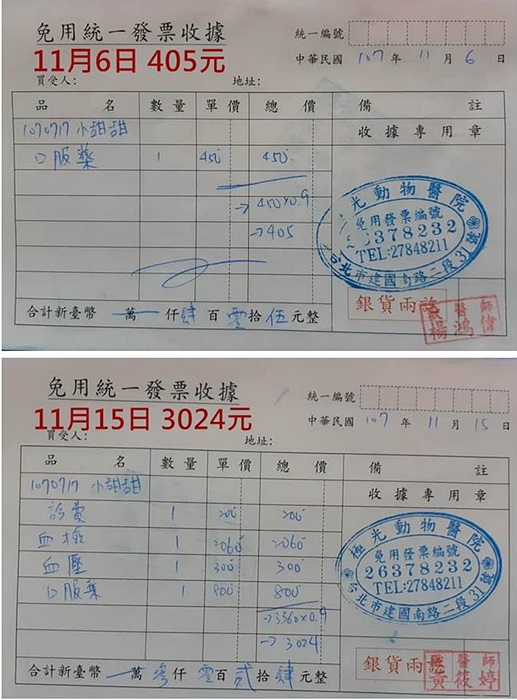 免用統一發票收據
統一編號
11月6日 405元
中華民國 107 年 11 月 6 日
買受人: 地址:
品 名 數量 單價 總價 備 註
1070717 小甜甜 收據專用章
口服藥 1 450 450
→450×0.9
→405
極光動物醫院
免用發票編號
26378232
TEL:27848211
台北市建國南路二段31號
銀貨兩訖
醫師
楊鴻偉
合計新臺幣 萬 仟 肆 百 零 拾 伍 元整
免用統一發票收據
統一編號
11月15日 3024元
中華民國 107 年 11 月 15 日
買受人: 地址:
品 名 數量 單價 總價 備 註
1070717 小甜甜 收據專用章
診費 1 200 200
血檢 1 2060 2060
血壓 1 300 300
口服藥 1 800 800
→3360×0.9
→3024
極光動物醫院
免用發票編號
26378232
TEL:27848211
台北市建國南路二段31號
銀貨兩訖
醫師
黃筱婷
合計新臺幣 萬 參 仟 零 百 貳 拾 肆 元整